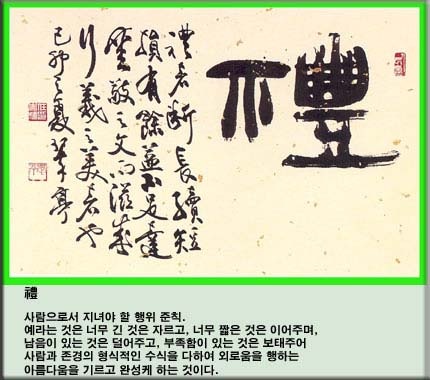 禮
禮者斷長續短
損有餘益不足達
愛敬之文而滋成
行義之美者也
己卯之夏 亭
禮
사람으로서 지녀야 할 행위 준칙.
예라는 것은 너무 긴 것은 자르고, 너무 짧은 것은 이어주며,
남음이 있는 것은 덜어주고, 부족함이 있는 것은 보태주어
사람과 존경의 형식적인 수식을 다하여 외로움을 행하는
아름다움을 기르고 완성케 하는 것이다.